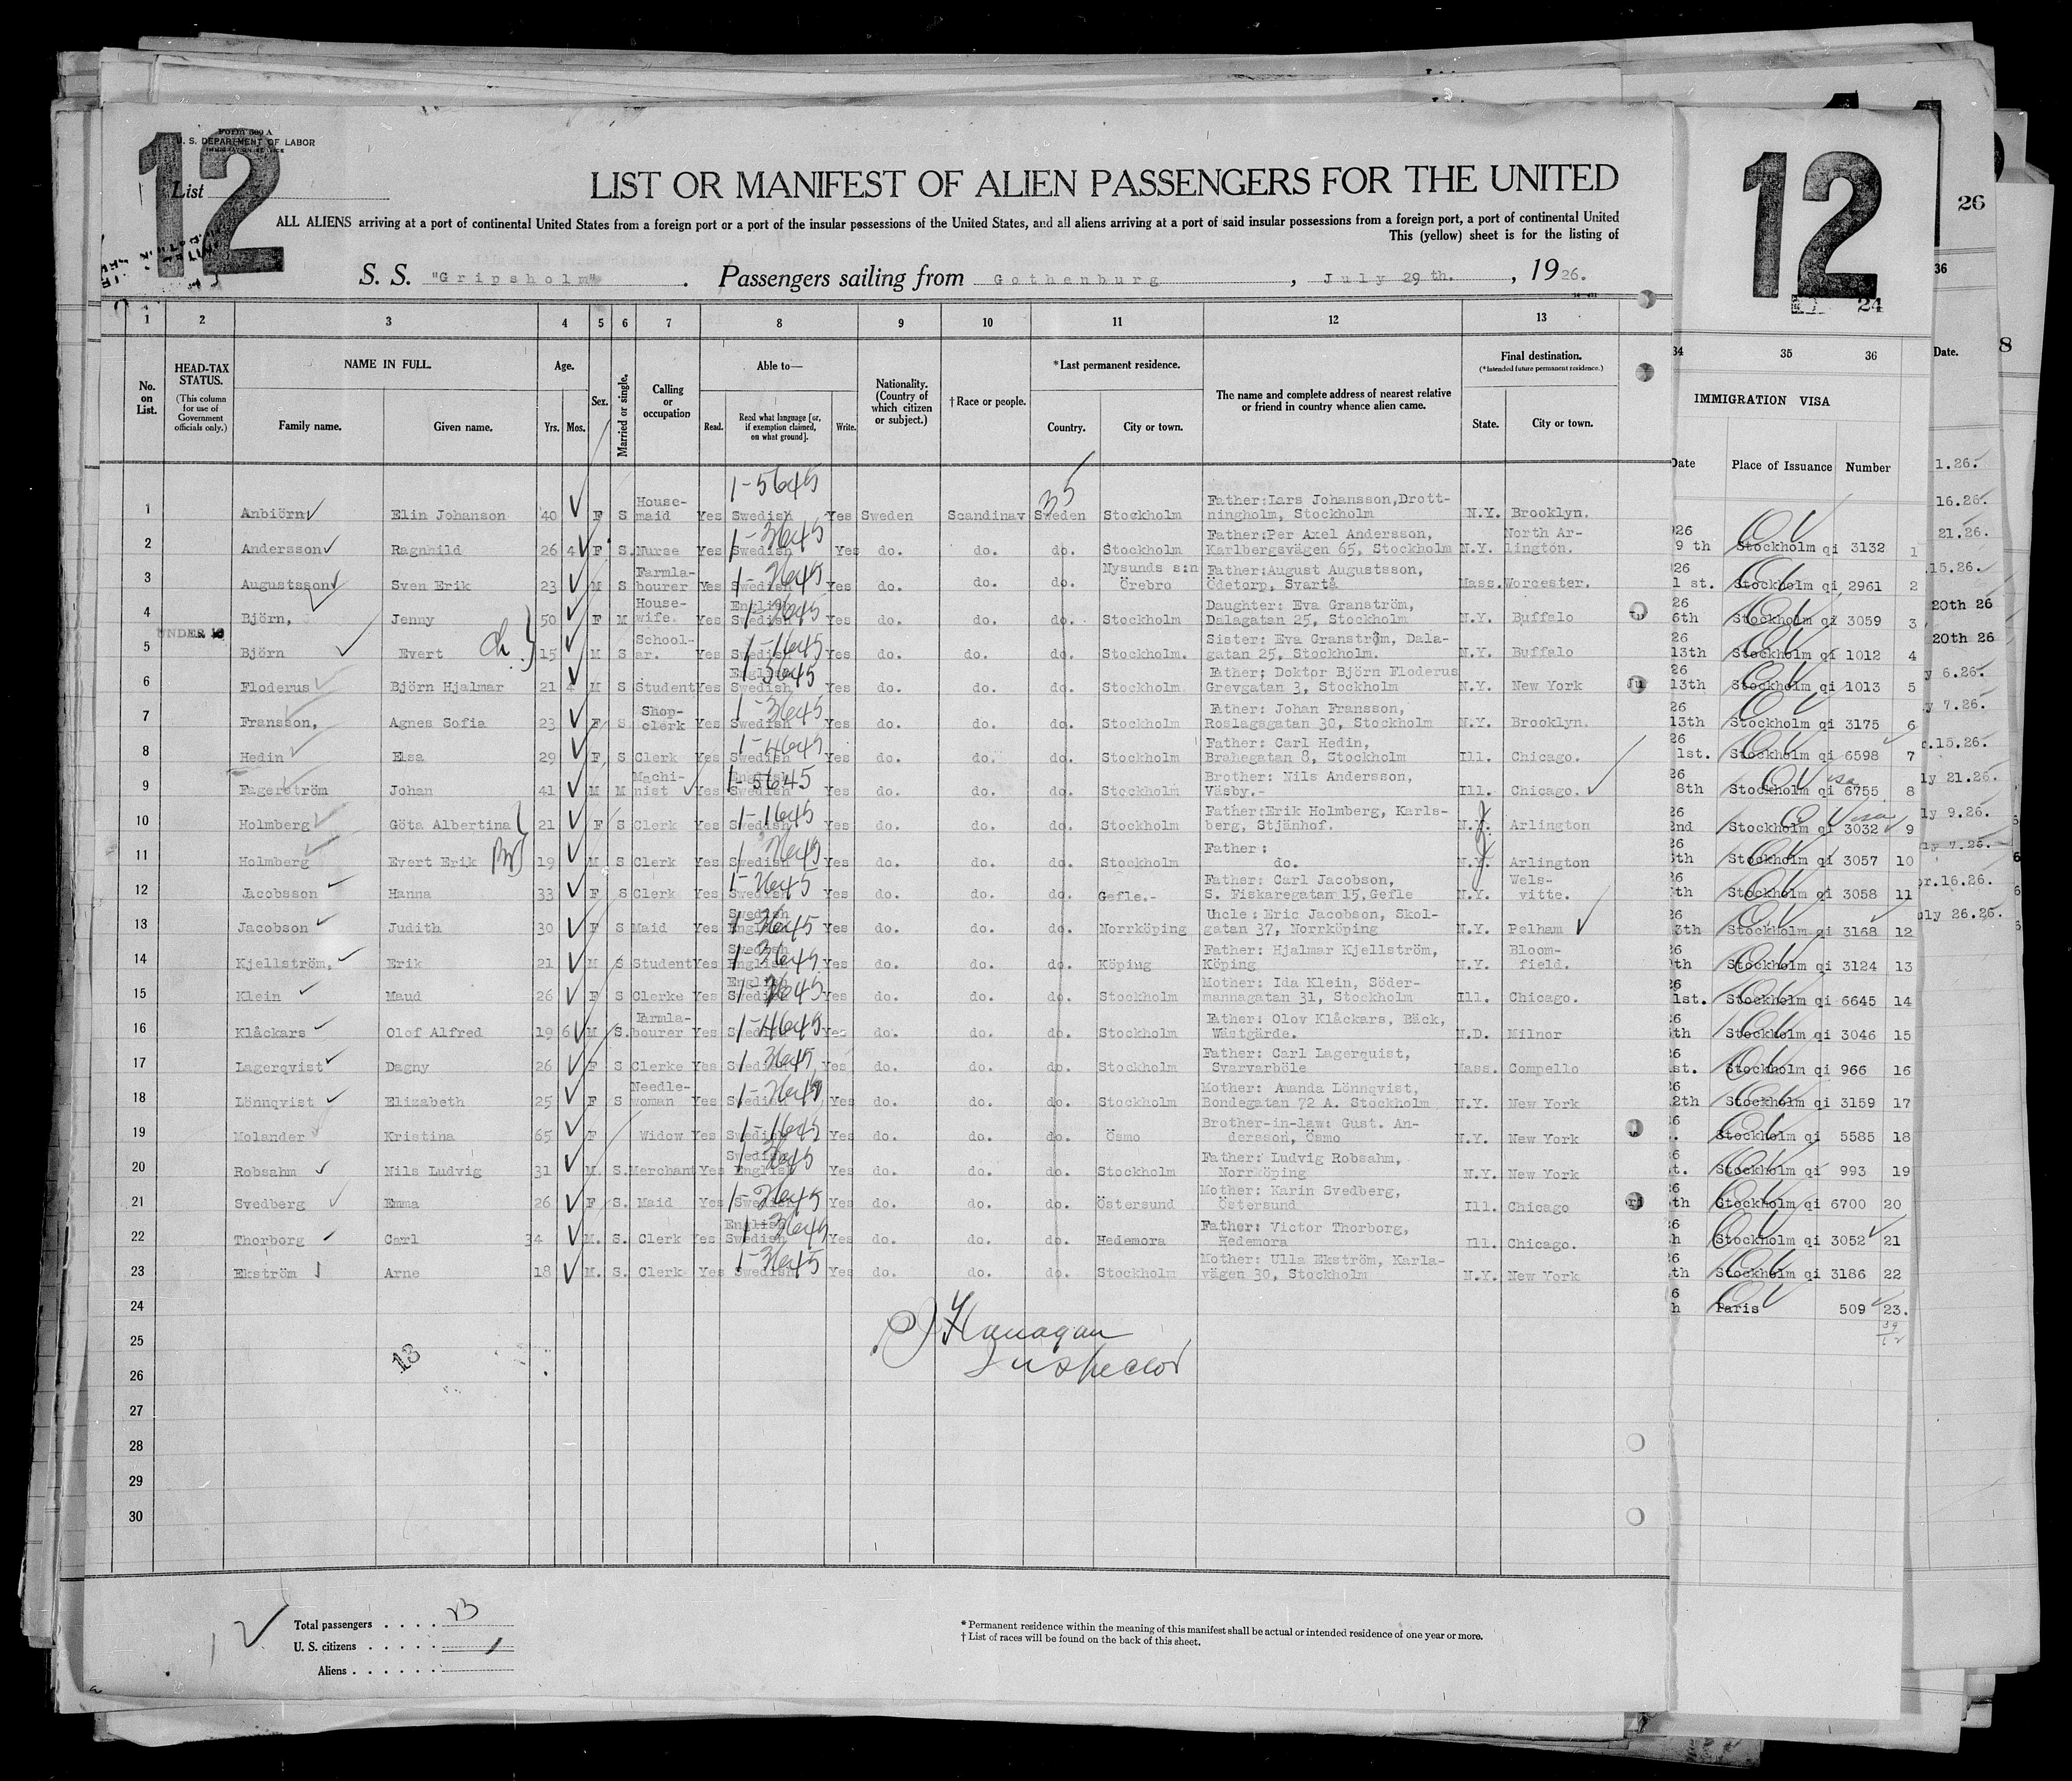 12
Form 500 A
U. S. DEPARTMENT OF LABOR
IMMIGRATION SERVICE
List
LIST OR MANIFEST OF ALIEN PASSENGERS FOR THE UNITED
ALL ALIENS arriving at a port of continental United States from a foreign port or a port of the insular possessions of the United States, and all aliens arriving at a port of said insular possessions from a foreign port, a port of continental United
This (yellow) sheet is for the listing of
S. S. "Gripsholm" . Passengers sailing from Gothenburg , July 29 th. , 1926.
1 2 3 4 5 6 7 8 9 10 11 12 13
No. on List. HEAD-TAX STATUS. (This column for use of Government officials only.) NAME IN FULL. Family name. Given name. Age. Yrs. Mos. Sex. Married or single. Calling or occupation Able to— Read. Read what language [or, if exemption claimed, on what ground]. Write. Nationality. (Country of which citizen or subject.) † Race or people. *Last permanent residence. Country. City or town. The name and complete address of nearest relative or friend in country whence alien came. Final destination. (*Intended future permanent residence.) State. City or town.
1-5645 35
1 Anbiörn Elin Johanson 40 F S House-maid Yes Swedish Yes Sweden Scandinav Sweden Stockholm Father:Lars Johansson,Drott-ningholm, Stockholm N.Y. Brooklyn.
1-3645
2 Andersson Ragnhild 26 4 F S. Nurse Yes Swedish Yes do. do. do. Stockholm Father:Per Axel Andersson, Karlbergsvägen 65, Stockholm N.Y. North Ar-lington.
3 Augustsson Sven Erik 23 M S Farmla-bourer Yes Swedish Yes do. do. do. Nysunds s:n Örebro Father:August Augustsson, Ödetorp, Svartå Mass. Worcester.
4 Björn, Jenny 50 F M House-wife. Yes English Swedish Yes do. do. do. Stockholm Daughter: Eva Granström, Dalagatan 25, Stockholm N.Y. Buffalo
UNDER 16
5 Björn Evert 15 M S School-ar. Yes Swedish Yes do. do. do. Stockholm. Sister: Eva Granström, Dala-gatan 25, Stockholm. N.Y. Buffalo
1-1645
6 Floderus Björn Hjalmar 21 4 M S Student Yes English Swedish Yes do. do. do. Stockholm Father; Doktor Björn Floderus Grevgatan 3, Stockholm N.Y. New York
1-3645
7 Fransson, Agnes Sofia 23 F S. Shop-clerk Yes Swedish Yes do. do. do. Stockholm Father: Johan Fransson, Roslagsgatan 30, Stockholm N.Y. Brooklyn.
1-3645
8 Hedin Elsa 29 F S Clerk Yes Swedish Yes do. do. do. Stockholm Father: Carl Hedin, Brahegatan 8, Stockholm Ill. Chicago.
1-4645
9 Fagerström Johan 41 M M Machi-nist Yes English Swedish Yes do. do. do. Stockholm Brother: Nils Andersson, Väsby.- Ill. Chicago.
1-5645
10 Holmberg Göta Albertina 21 F S Clerk Yes Swedish Yes do. do. do. Stockholm Father:Erik Holmberg, Karls-berg, Stjänhof. N.Y. Arlington
1-1645
11 Holmberg Evert Erik 19 M S Clerk Yes Swedish Yes do. do. do. Stockholm Father: do. N.Y. Arlington
12 Jacobsson Hanna 33 F S Clerk Yes Swedish Yes do. do. do. Gefle.- Father: Carl Jacobson, S. Fiskaregatan 15,Gefle N.Y. Wels-vitte.
13 Jacobson Judith 30 F S Maid Yes Swedish English Yes do. do. do. Norrköping Uncle: Eric Jacobson, Skol-gatan 37, Norrköping N.Y. Pelham
1-3645
14 Kjellström, Erik 21 M S Student Yes Swedish English Yes do. do. do. Köping Father: Hjalmar Kjellström, Köping N.Y. Bloom-field.
1-3645
15 Klein Maud 26 F S Clerke Yes English Swedish Yes do. do. do. Stockholm Mother: Ida Klein, Söder-mannagatan 31, Stockholm Ill. Chicago.
16 Klåckars Olof Alfred 19 6 M S. Farmla-bourer Yes Swedish Yes do. do. do. Stockholm Father: Olov Klåckars, Bäck, Wästgärde. N.D. Milnor
1-4645
17 Lagerqvist Dagny 26 F S Clerke Yes Swedish Yes do. do. do. Stockholm Father: Carl Lagerquist, Svarvarböle Mass. Compello
1-3645
18 Lönnqvist Elizabeth 25 F S Needle-woman Yes Swedish Yes do. do. do. Stockholm Mother: Amanda Lönnqvist, Bondegatan 72 A. Stockholm N.Y. New York
19 Molander Kristina 65 F Widow Yes Swedish Yes do. do. do. Ösmo Brother-in-law: Gust. An-dersson, Ösmo N.Y. New York
1-1645
20 Robsahm Nils Ludvig 31 M. S. Merchant Yes Swedish English Yes do. do. do. Stockholm Father: Ludvig Robsahm, Norrköping N.Y. New York
21 Svedberg Emma 26 F S. Maid Yes Swedish Yes do. do. do. Östersund Mother: Karin Svedberg, Östersund Ill. Chicago
22 Thorborg Carl 34 M. S. Clerk Yes English Swedish Yes do. do. do. Hedemora Father: Victor Thorborg, Hedemora Ill. Chicago.
1-3645
23 Ekström Arne 18 M. S. Clerk Yes Swedish Yes do. do. do. Stockholm Mother: Ulla Ekström, Karla-vägen 30, Stockholm N.Y. New York
1-3645
24
25
26
27
28
29
30
Flanagan
Inspector
13
Total passengers . . . . 23
U. S. citizens . . . . .
Aliens . . . . . .
* Permanent residence within the meaning of this manifest shall be actual or intended residence of one year or more.
† List of races will be found on the back of this sheet.
12
24
34 35 36
IMMIGRATION VISA
Date Place of Issuance Number
926
9 th Stockholm qi 3132 1
926
1 st. Stockholm qi 2961 2
26
6th Stockholm qi 3059 3
26
13th Stockholm qi 1012 4
26
13th Stockholm qi 1013 5
26
13th Stockholm qi 3175 6
26
1st. Stockholm qi 6598 7
26
8th Stockholm qi 6755 8
26
2nd Stockholm qi 3032 9
26
th Stockholm qi 3057 10
26
th Stockholm qi 3058 11
26
3th Stockholm qi 3168 12
26
th Stockholm qi 3124 13
26
1st. Stockholm qi 6645 14
26
th Stockholm qi 3046 15
26
st. Stockholm qi 966 16
26
2th Stockholm qi 3159 17
6
Stockholm qi 5585 18
6
t. Stockholm qi 993 19
6
th Stockholm qi 6700 20
6
h Stockholm qi 3052 21
6
th Stockholm qi 3186 22
6
h Paris 509 23.
26
36
Date.
8
1.26.
16.26.
21.26.
.15.26.
20th 26
20th 26
y 6.26.
y 7.26.
.15.26.
ly 21.26.
ly 9.26.
ly 7.26.
r.16.26.
uly 26.26.